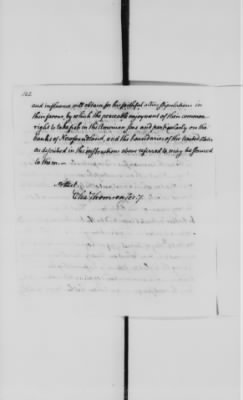 142
and influence will obtain for his faithful allies stipulations in
their favour, by which the peaceable enjoyment of their common
right to take fish in the American seas and particularly on the
banks of Newfoundland, and the boundaries of the United States
as described in the instructions above referred to may be secured
to them.—
Attest
Cha Thomson secy.